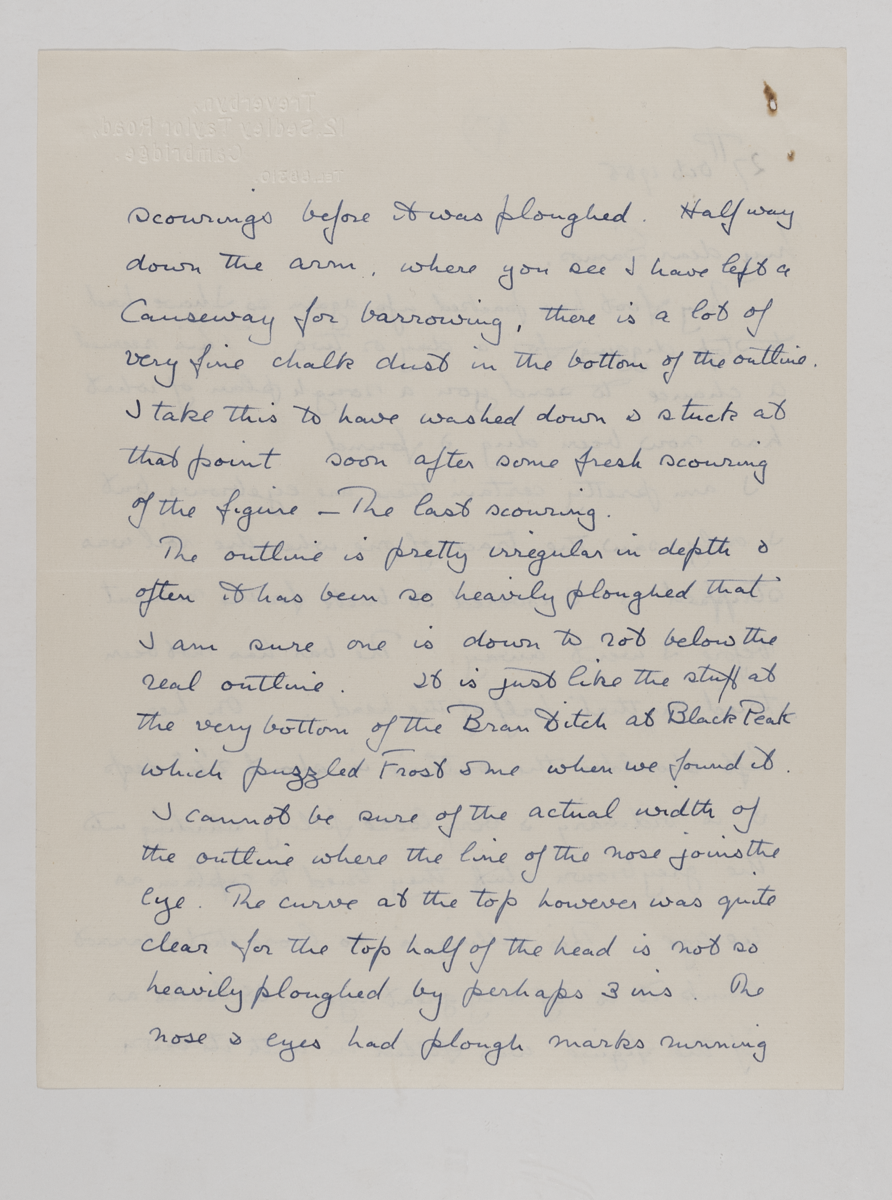 scourings before it was ploughed. Half way
down the arm, where you see I have left a
Causeway for barrowing, there is a lot of
very fine chalk dust in the bottom of the outline.
I take this to have washed down & stuck at
that point soon after some fresh scouring
of the figure – The last scouring.
The outline is pretty irregular in depth &
often it has been so heavily ploughed that
I am sure one is down to rot below the
real outline. It is just like the stuff at
the very bottom of the Bran Ditch at Black Peak
which puzzled Frost & me when we found it.
I cannot be sure of the actual width of
the outline where the line of the nose joins the
eye. The curve at the top however was quite
clear for the top half of the head is not so
heavily ploughed by perhaps 3 ins. The
nose & eyes had plough marks running